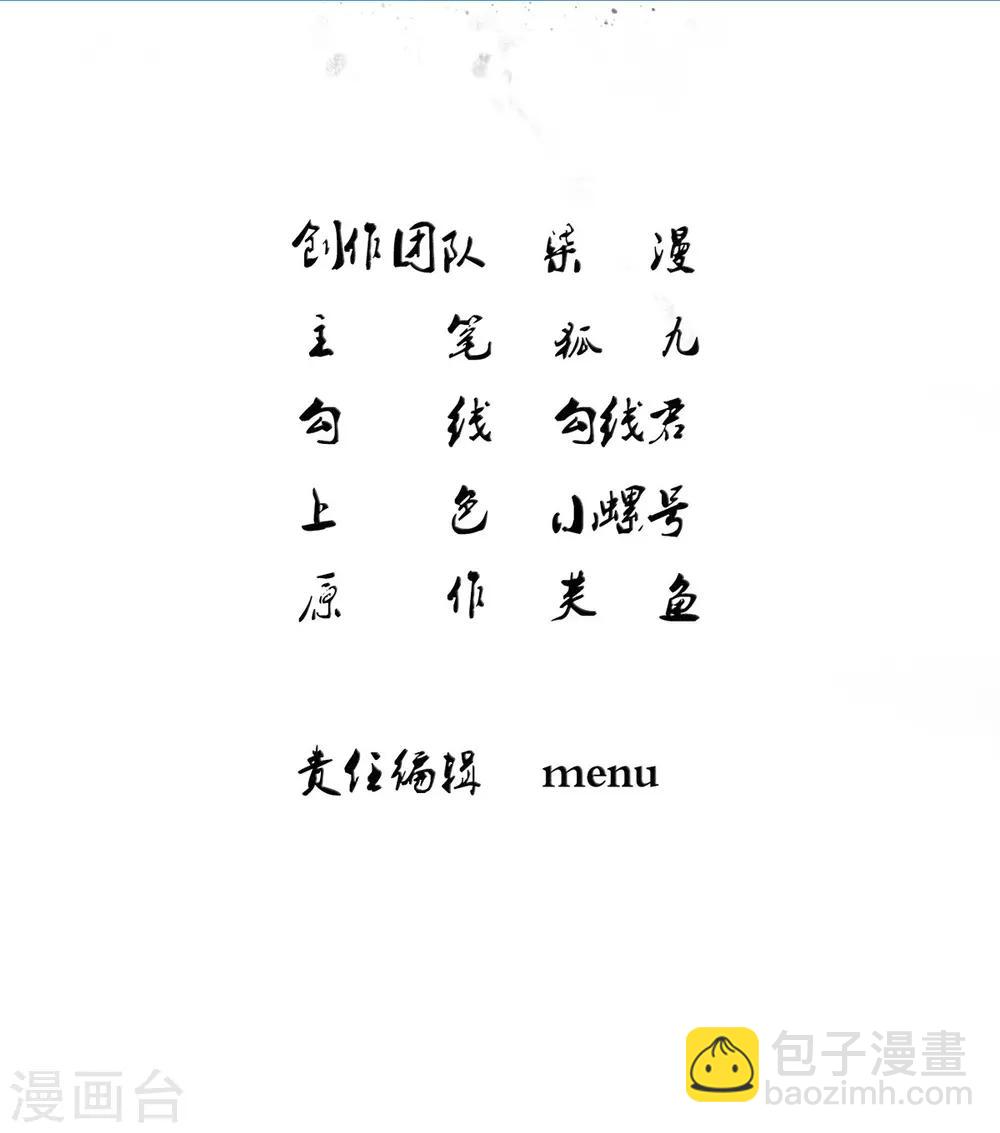 创作团队 柒 漫
主 笔 狐 九
勾 线 勾线君
上 色 小螺号
原 作 芙 鱼
责任编辑 menu
漫画台
包子漫畫
baozimh.com